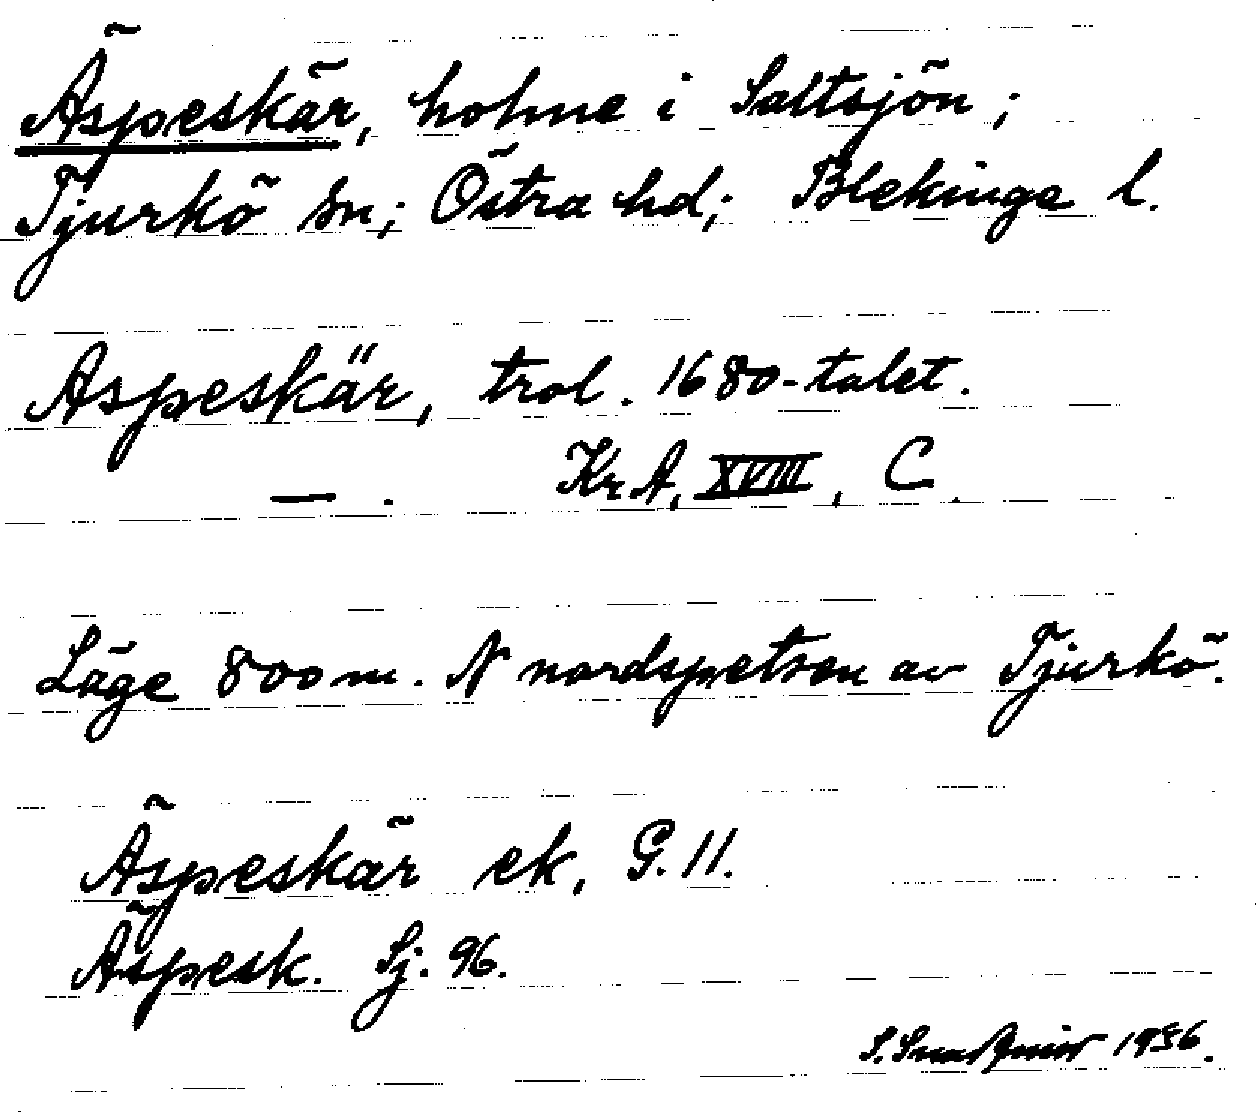 Äspeskär, holme i Saltsjön;
Tjurkö sn; Östra hd; Blekinge l.
Aspeskär, trol. 1680-talet.
— . Kr A, XVIII, C.
Läge 800 m. N nordspetsen av Tjurkö.
Äspeskär ek, G. 11.
Äspesk. Sj. 96.
S. 1936.